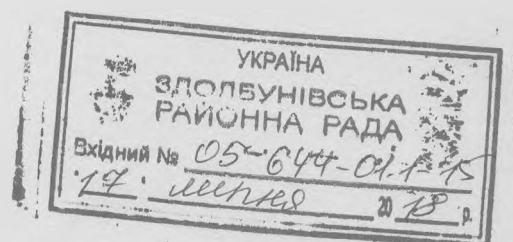 УКРАЇНА
ЗДОЛБУНІВСЬКА
РАЙОННА РАДА
Вхідний № 05-644-01.1-15
"17" липня 2018 р.